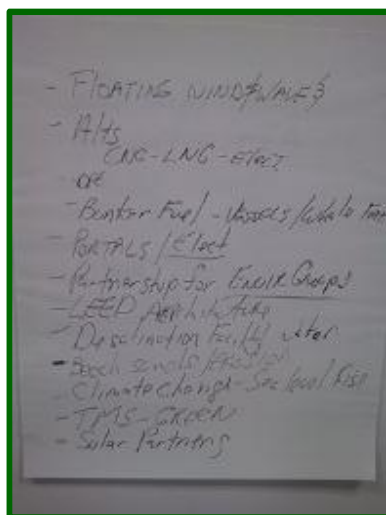 - FLOATING WIND & WAVE &
- Alts
CNG-LNG-Elect
- Bunker Fuel - Vessels /
- PORTALS / Elect
- Partnership for ENVIR Groups
- LEED Architecture
- Desalination Facility water
- Beach sands /
- Climate Change - Sea level Rise
- TMS-GREEN
- Solar Partners